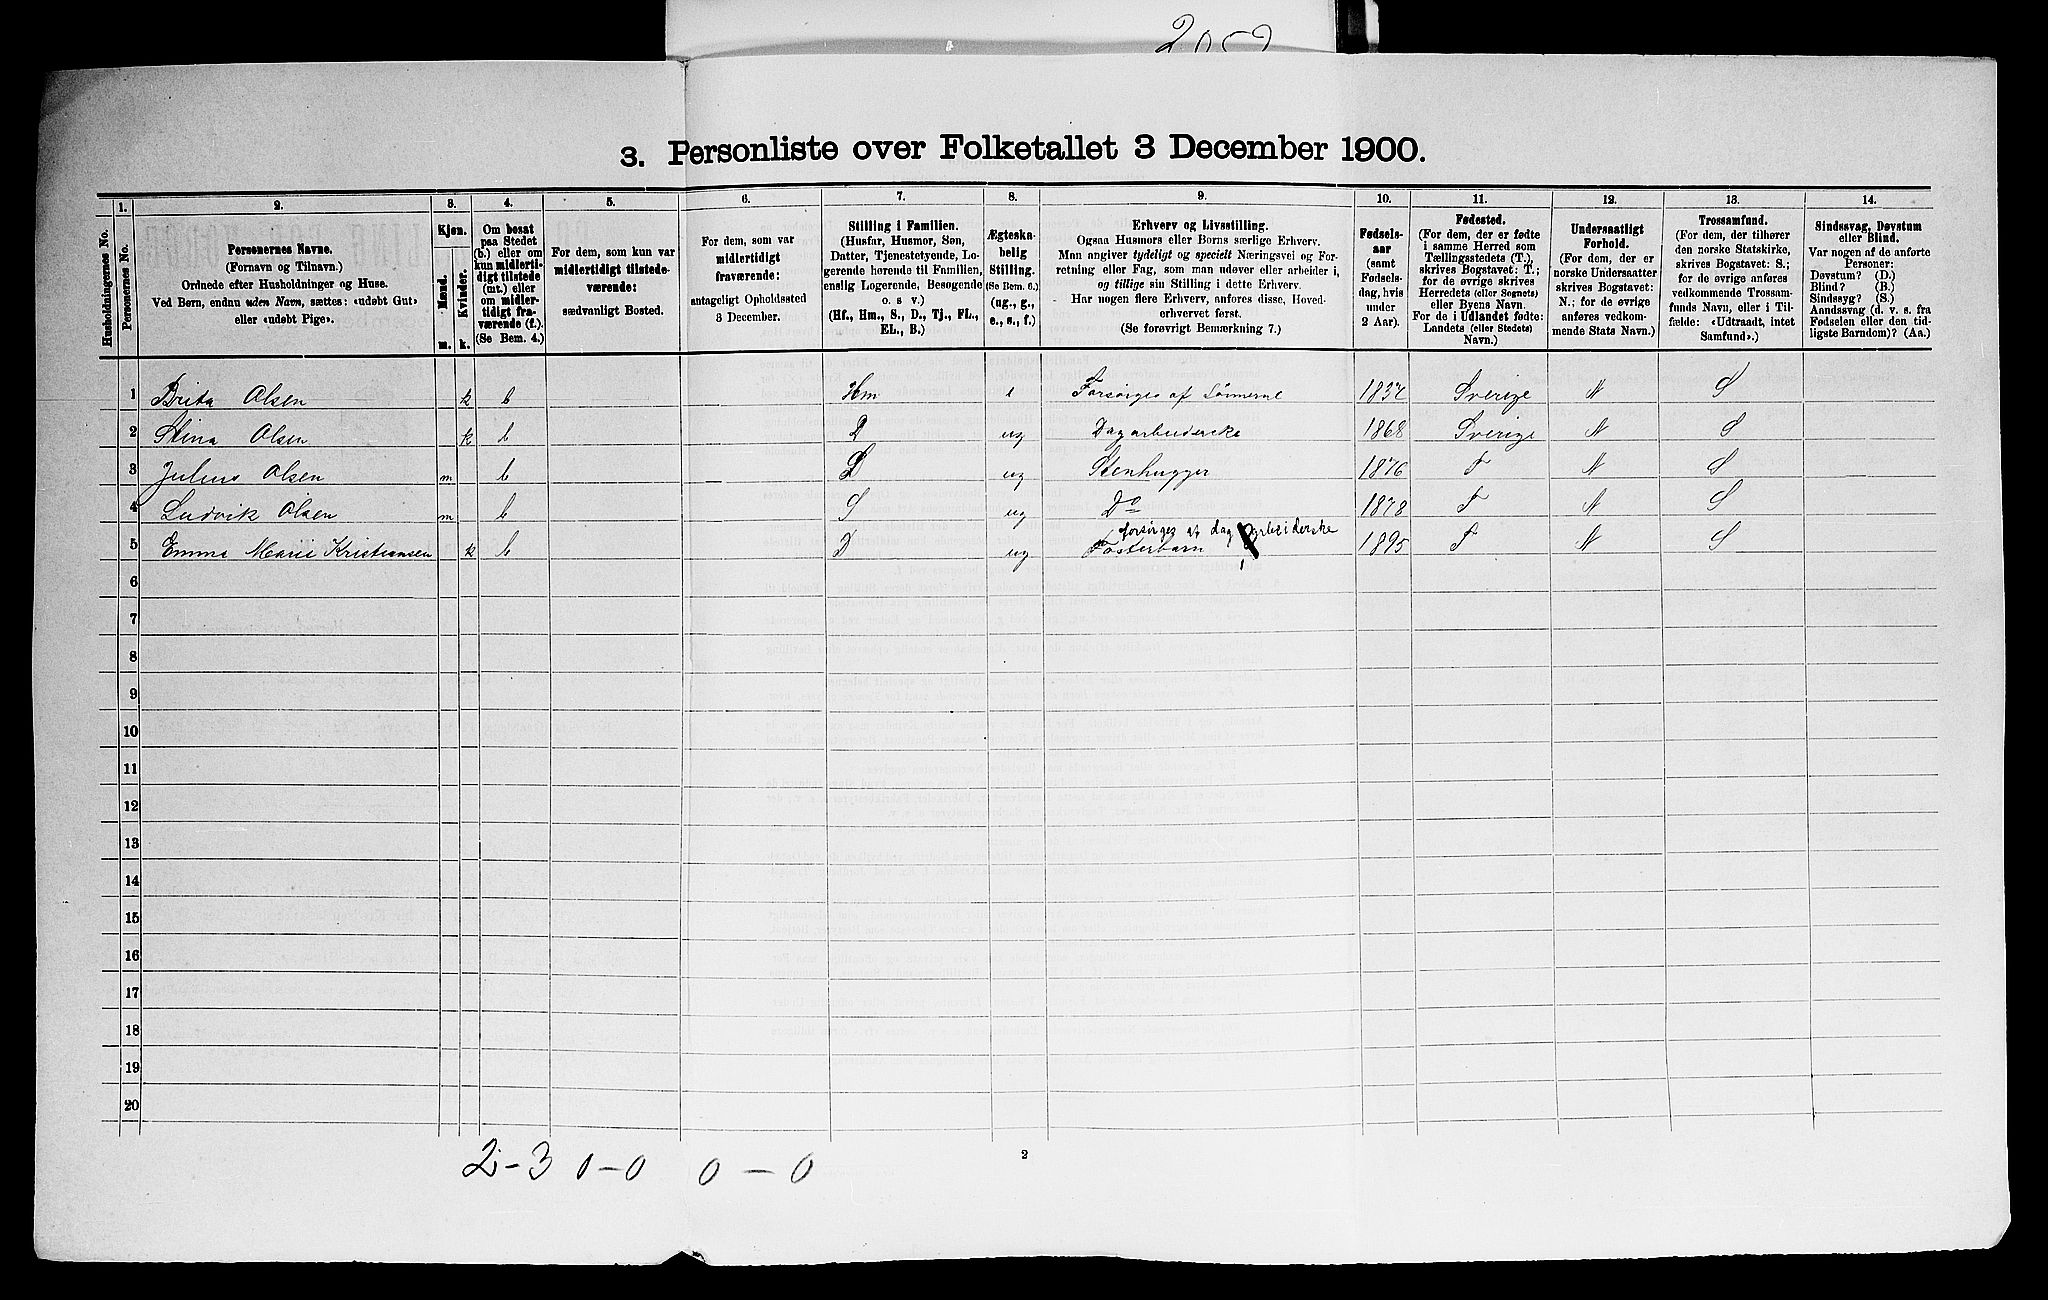 3. Personliste over Folketallet 3 December 1900.
1. 2. 3. 4. 5. 6. 7. 8. 9. 10. 11. 12. 13. 14.
Husholdningernes No.
Personernes No.
Personernes Navne.
(Fornavn og Tilnavn.)
Ordnede efter Husholdninger og Huse.
Ved Børn, endnu uden Navn, sættes: «udøbt Gut»
eller «udøbt Pige».
Kjøn.
Mænd.
Kvinder.
m. k.
Om bosat
paa Stedet
(b.) eller om
kun midlerti-
digt tilstede
(mt.) eller
om midler-
tidigt fra-
værende (f.).
(Se Bem. 4.)
For dem, som kun var
midlertidigt tilstede-
værende:
sædvanligt Bosted.
For dem, som var
midlertidigt
fraværende:
antageligt Opholdssted
3 December.
Stilling i Familien.
(Husfar, Husmor, Søn,
Datter, Tjenestetyende, Lo-
gerende hørende til Familien,
enslig Logerende, Besøgende
o. s v.)
(Hf., Hm., S., D., Tj., FL.,
EL., B.)
Ægteska-
belig
Stilling.
(Se Bem. 6.)
(ug., g.,
e., s., f.)
Erhverv og Livsstilling.
Ogsaa Husmors eller Børns særlige Erhverv.
Man angiver tydeligt og specielt Næringsvei og For-
retning eller Fag, som man udøver eller arbeider i,
og tillige sin Stilling i dette Erhverv.
Har nogen flere Erhverv, anføres disse, Hoved-
erhvervet først.
(Se forøvrigt Bemærkning 7.)
Fødsels-
aar
(samt
Fødsels-
dag, hvis
under
2 Aar).
Fødested.
(For dem, der er fødte
i samme Herred som
Tællingsstedets (T.),
skrives Bogstavet: T.;
for de øvrige skrives
Herredets (eller Sognets)
eller Byens Navn.
For de i Udlandet fødte:
Landets (eller Stedets)
Navn.)
Undersaatligt
Forhold.
(For dem, der er
norske Undersaatter
skrives Bogstavet:
N.; for de øvrige
anføres vedkom-
mende Stats Navn.)
Trossamfund.
(For dem, der tilhører
den norske Statskirke,
skrives Bogstavet: S.;
for de øvrige anføres
vedkommende Trossam-
funds Navn, eller i Til-
fælde: «Udtraadt, intet
Samfund».)
Sindssvag, Døvstum
eller Blind.
Var nogen af de anførte
Personer:
Døvstum? (D.)
Blind? (B.)
Sindssyg? (S.)
Aandssvag (d. v. s. fra
Fødselen eller den tid-
ligste Barndom)? (Aa.)
1 Brita Olsen k b Hm e Forsørges af Sønnerne Sverige N S
2 Stina Olsen k b D ug Dagarbeiderske 1868 Sverige N S
3 Julius Olsen m b ug Stenhugger 1876 T N S
4 Ludvik Olsen m b S ug Do 1878 T N S
forsørges af dagarbeiderske
5 Emma Marie Kristiansen k b D ug Fosterbarn 1895 T N S
6
7
8
9
10
11
12
13
14
15
16
17
18
19
20
2-3 0-0 0-0
2